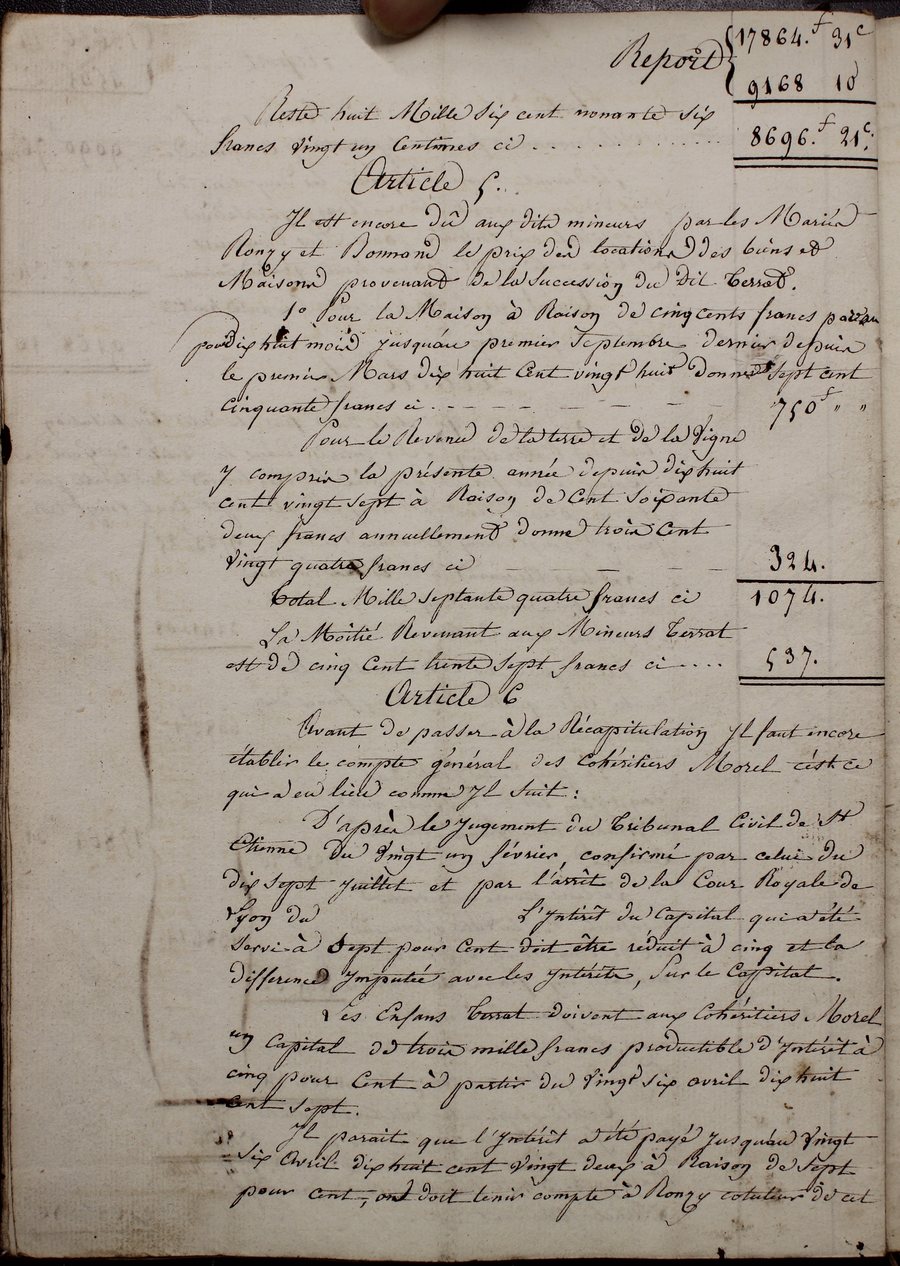 Report { 17864.f 31c
9168 10
Reste huit Mille Six cent nonante six
francs vingt un Centimes ci . . . . . . . . . . . . 8696.f 21c.
Article 5.
Il est encore dû aux dits mineurs par les Mariés
Ronzy et Bonnand le prix des locations des biens et
Maisons provenant de la Succession du dit Terrat.
1o Pour la Maison à Raison de cinq cents francs par an
pour dix huit mois jusqu'au premier Septembre dernier depuis
le premier Mars dix huit Cent vingt huit donne Sept cent
Cinquante francs ci . _ _ _ _ _ _ 750f " "
Pour le Revenu de la terre et de la Vigne
y compris la présente année depuis dix huit
cent vingt sept à Raison de Cent Soixante
deux francs annuellement donne trois Cent
vingt quatre francs ci _ _ _ _ _ 324.
Total Mille Septante quatre francs ci 1074.
La Moitié Revenant aux Mineurs Terrat
est de cinq Cent trente Sept francs ci .... 537.
Article 6
Avant de passer à la Récapitulation Il faut encore
établir le compte général des Cohéritiers Morel c'est ce
qui a eu lieu comme Il Suit :
D'après le Jugement du Tribunal Civil de St
Etienne du Vingt un février, confirmé par celui du
dix Sept Juillet et par l'arrêt de la Cour Royale de
Lyon du L'Intérêt du Capital qui a été
Servi à Sept pour Cent doit être réduit à cinq et la
difference Imputée avec les Intérêts, Sur le Capital.
Les Enfans Terrat doivent aux Cohéritiers Morel
un Capital de trois mille francs productible d'Intérêt à
cinq pour Cent à partir du Vingt six avril dix huit
cent Sept.
Il parait que l'Intérêt a été payé Jusqu'au Vingt
Six Avril dix huit cent Vingt deux à Raison de Sept
pour cent, on doit tenir compte à Ronzy cotuteur de cet